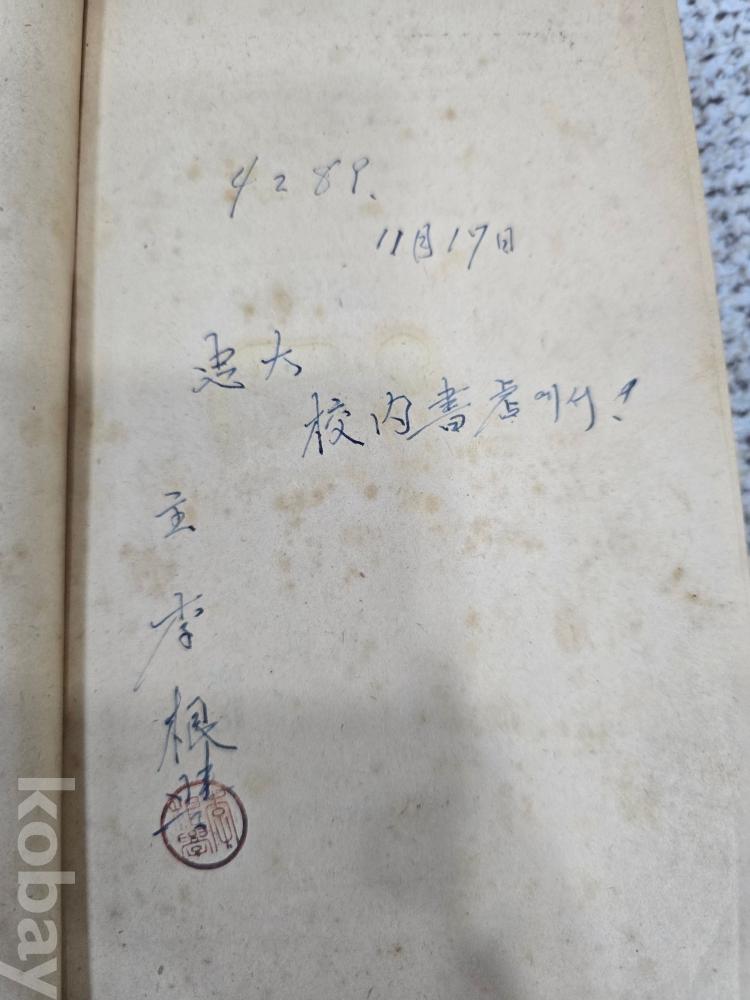 4289.
11月17日
忠大
校内書店에서!
主
李
根
kobay